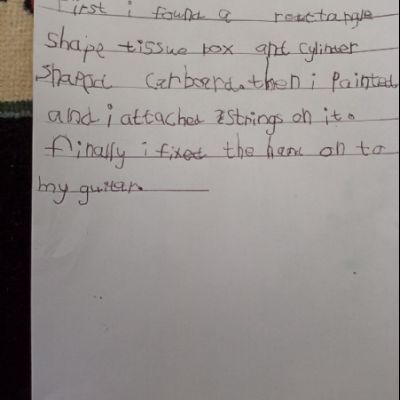 First i found a rectangle
shape tissue box and cylinder
shaped carboard. then i painted
and i attached 2 strings on it.
finally i fixed the hand on to
my guitar.